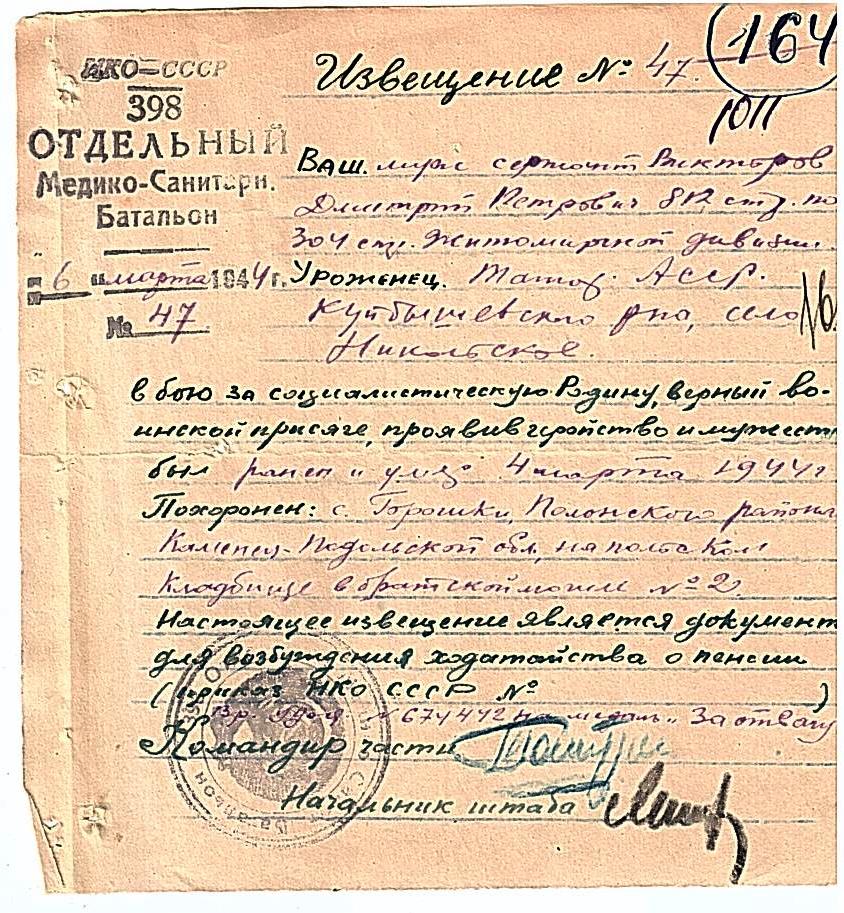 НКО-СССР
398
ОТДЕЛЬНЫЙ
Медико-Санитарн.
Батальон
"6" марта 1944г.
№ 47.
164
Извещение № 47.
1011
Ваш. муж сержант Викторов
Дмитрий Петрович 812 стр. по
304 стр. Житомирской дивизии.
Уроженец. Татар. АССР.
Куйбышевского рна, село
Никольское.
в бою за социалистическую Родину, верный во-
инской присяге, проявив геройство и мужест
был ранен и умер 4 марта 1944г
Похоронен: с. Горошки, Полонского района
Каменец-Подольской обл, на
кладбище в братской могиле №2
Настоящее извещение является документ
для возбуждения ходатайства о пенсии
(приказ НКО СССР № )
№ 674472 на медаль "За отвагу
Командир части
Начальник штаба